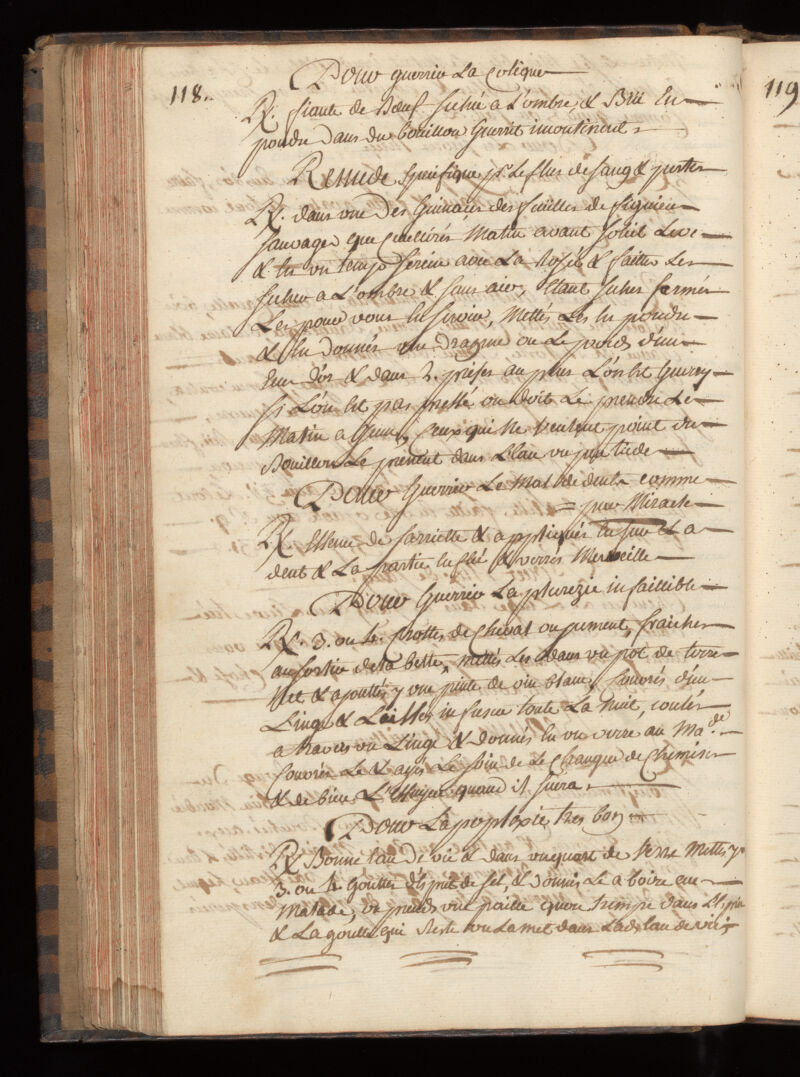 Pour guerrir La Colique
118.
R. fiante de Boeuf sechée a L'ombre & Bue En
poudre Dans du bouillon Guerit incontinent
Remede specifique pr. Le flus de sang & pertes
R. dans une Des feuilles de figuier
sauvages que Matin avant soleil Levé
& en un temps serein avec La Rosée & faites Les
secher a L'ombre & sans air, Etant seches fermés
Les pour vous En servir, Mettés Les En poudre
& En Donnés une Dragme ou Le poids d'un
Ecu d'or & dans 2. prises au plus L'on Est
si L'on Est pas pressé on doit Le prendre Le
Matin a Jeun, Ceux qui Ne veulent point du
Bouillon Le prenent dans L'Eau un peu tiede
Pour Guerrir Le Mal de dents comme
= par Miracle
R. Essence de sarriette & appliqués En sur La
dent & La partie Enflé & verrés Merveille
Pour Guerrir La pleurezie infaillible
R. 3. ou 4. crottes de Cheval ou jument, fraiches
au sortir de la bette, mettés Les dans un pot de terre
& ajouttés y une pinte de vin blanc, Couvrés d'un
Linge & Laisses infuser toute La Nuit, coulés
a travers un Linge & donnés En un verre au Made.
Couvrés Le & ayés Le soin de Le Changer de Chemise
& de bien L'Essuyer quand il suera
Pour L'apoplexie tres bon
R. Bonne Eau De vie & dans un quart de Verre Mettés y
3. ou 4. Gouttes d'Esprit de sel, & Donnés Le a boire au
Malade, on prend une paille qu'on trempe dans L'Esprit
& La goutte qui Reste on La met dans Lad. Eau de vie
119